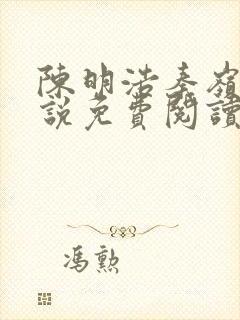 陳明浩秦嶺
說免費閱讀
馮勲